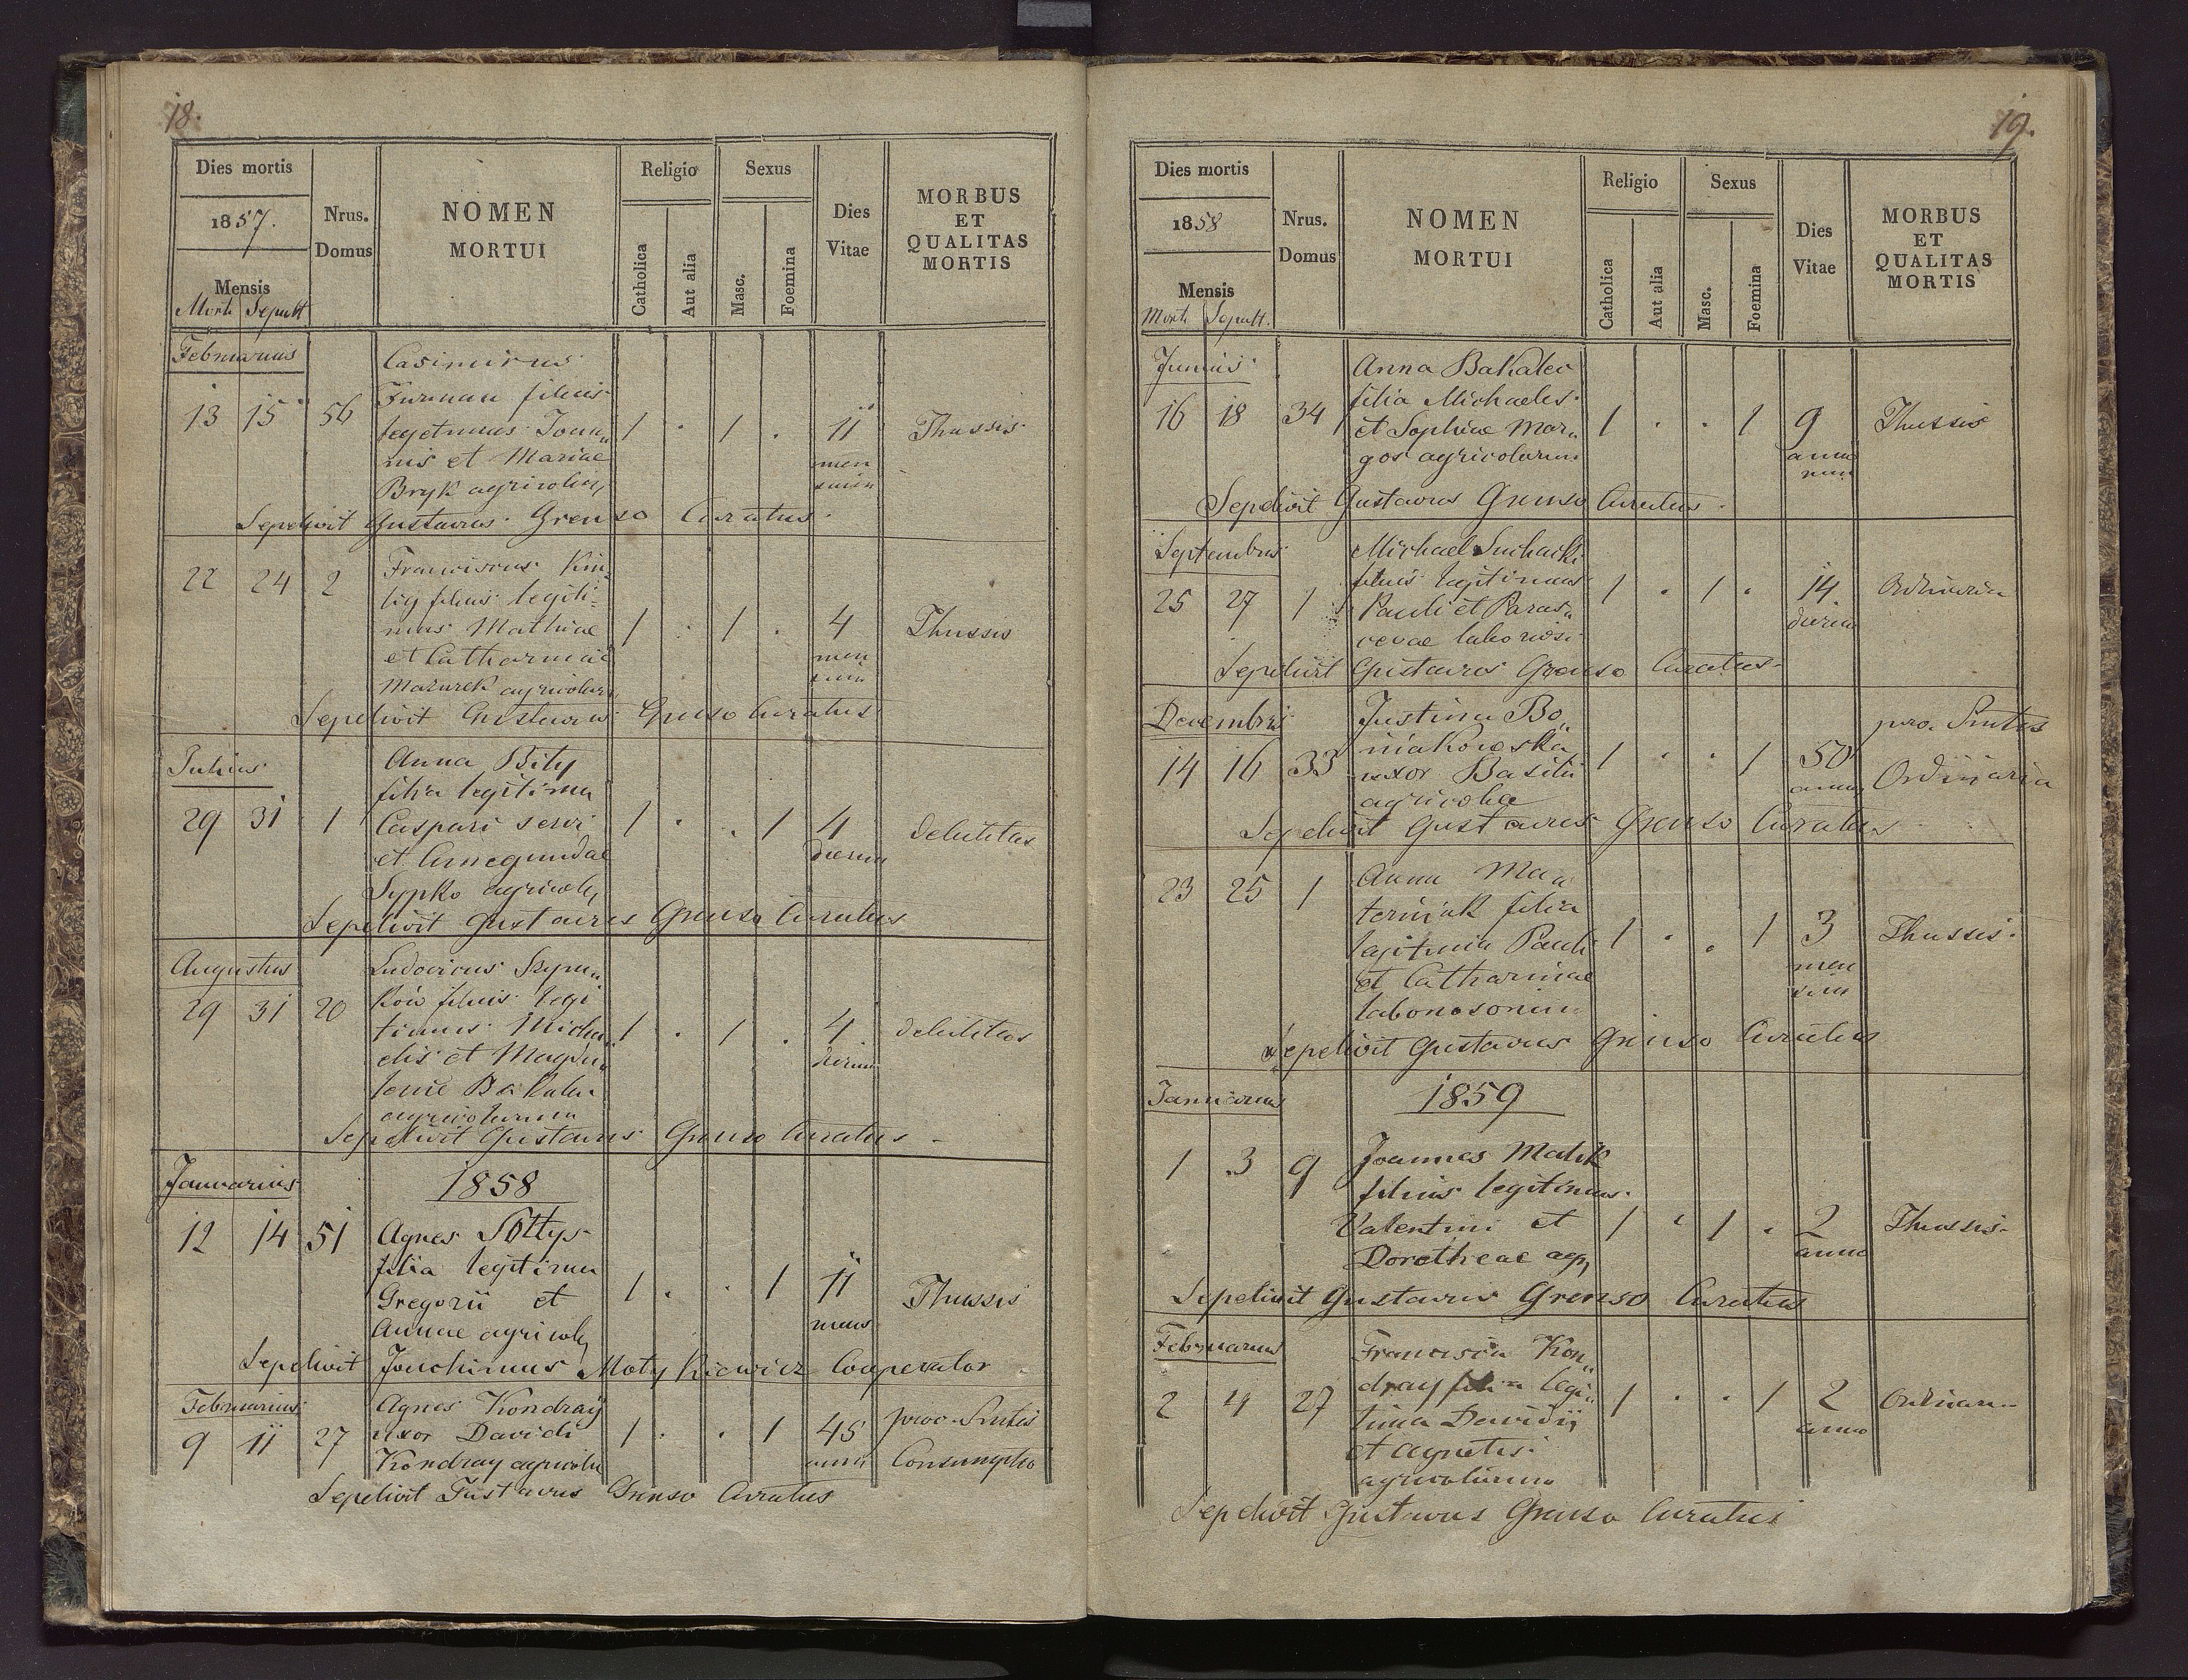 18.
Dies mortis
1857.
Mensis
Morti Sepult
Nrus.
Domus
NOMEN
MORTUI
Religio
Catholica
Aut alia
Sexus
Masc.
Foemina
Dies
Vitae
MORBUS
ET
QUALITAS
MORTIS
Februarius
Casimirus
Furman filius
13 15 56 legitimus Joan„ 1 . 1 . 11 Thussis
nis et Mariae men
Bryk agricolar, sium
Sepelivit Gustavus Grenso Curatus
Franciscus Kin
22 24 2 lig filius legiti=
mus Mathiae 1 . 1 . 4 Thussis
et Catharinae men
Mazurek agricolarum sium
Sepelivit Gustavus Grenso Curatus
Julius Anna Bity
filia legitima
29 31 1 Caspari servi 1 . . 1 4 debilitas
et Cunegundae dierum
Sypko agricola,
Sepelivit Gustavus Grenso Curatus
Augustus Ludovicus Szym„
29 31 20 ków filius legi
timus Micha 1 . 1 . 4 debilitas
elis et Magda„ dierum
lenae Bakalec
agricolarum
Sepelivit Gustavus Grenso Curatus
Januarius 1858
12 14 51 Agnes Sołtys
filia legitima
Gregorii et 1 . . 1 11 Thussis
Annae agricol, mens
Sepelivit Joachimus Matykiewicz Cooperator
Februarius Agnes Kondray
9 11 27 uxor Davidi 1 . . 1 45 proc. Smtis
Kondray agricolae anni Consumptio
Sepelivit Gustavus Grenso Curatus
19.
Dies mortis
1858
Mensis
Morti Sepult.
Nrus.
Domus
NOMEN
MORTUI
Religio
Catholica
Aut alia
Sexus
Masc.
Foemina
Dies
Vitae
MORBUS
ET
QUALITAS
MORTIS
Junius Anna Bakalec
filia Michaelis
16 18 34 et Sophiae Mar„ 1 . . 1 9 Thussis
gos agricolarum anno
rum
Sepelivit Gustavus Grenso Curatus.
Septembris Michael Suchacki
filius legitimus
25 27 1 Pauli et Paras„ 1 . 1 . 14 Ordinaria
cevae laboriosi dierum
Sepelivit Gustavus Grenso Curatus
Decembris Justina Bo„ pro. Smtus
14 16 33 niakowska 1 . . 1 50 Ordinaria
uxor Basilii annor,
agricolae
Sepelivit Gustavus Grenso Curatus
Anna Ma„
23 25 1 terniak filia
legitima Pauli 1 . . 1 3 Thussis
et Catharinae men
laboriosorum sium
Sepelivit Gustavus Grenso Curatus
Januarius 1859
1 3 9 Joannes Malik
filius legitimus
Valentini et 1 . 1 . 2 Thussis
Dorotheae agr, anno
Sepelivit Gustavus Grenso Curatus
Februarius Francisca Kon„
2 4 27 dray filia legi„ 1 . . 1 2 Ordinari
tima Davidii anno
et Agnetis
agricolarum
Sepelivit Gustavus Grenso Curatus